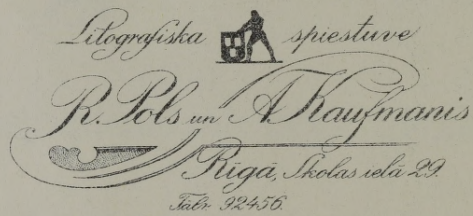 Litografiska spiestuve
R. Pols un A. Kaufmanis
Rīgā, Skolas ielā 29.
Tālr. 92456.